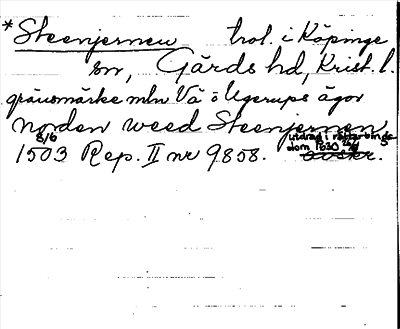 *Steenjernen trol. i Köpinge
sn, Gärds hd, Krist. l.
gränsmärke mln Vä o Ugerups ägor
norden weed Steenjernen
8/6 utdrag i rättartings
1503 Rep. II nr 9858. dom 1530 avskr.